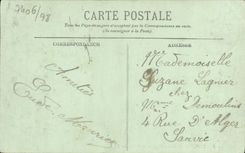 2406/98
CARTE POSTALE
Tous les Pays étrangers n'acceptent pas la Correspondance au recto.
(Se renseigner à la Poste)
CORRESPONDANCE
ADRESSE
Amitiés
Mademoiselle
Suzane Lagnier
chez
Mme Demoulins
4 Rue D'Alger
Sanvic